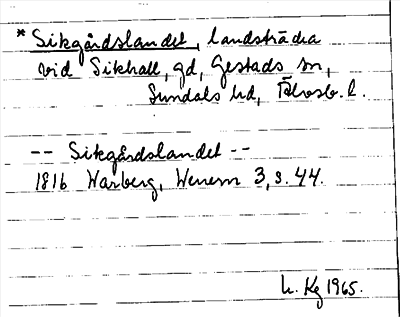 * Sikgårdslandet, landsträcka
vid Sikhall, gd, Gestads sn,
Sundals hd, Älvsb. l.
-- Sikgårdslandet --
1816 Warberg, Wenern 3, s. 44.
L. Kg 1965.